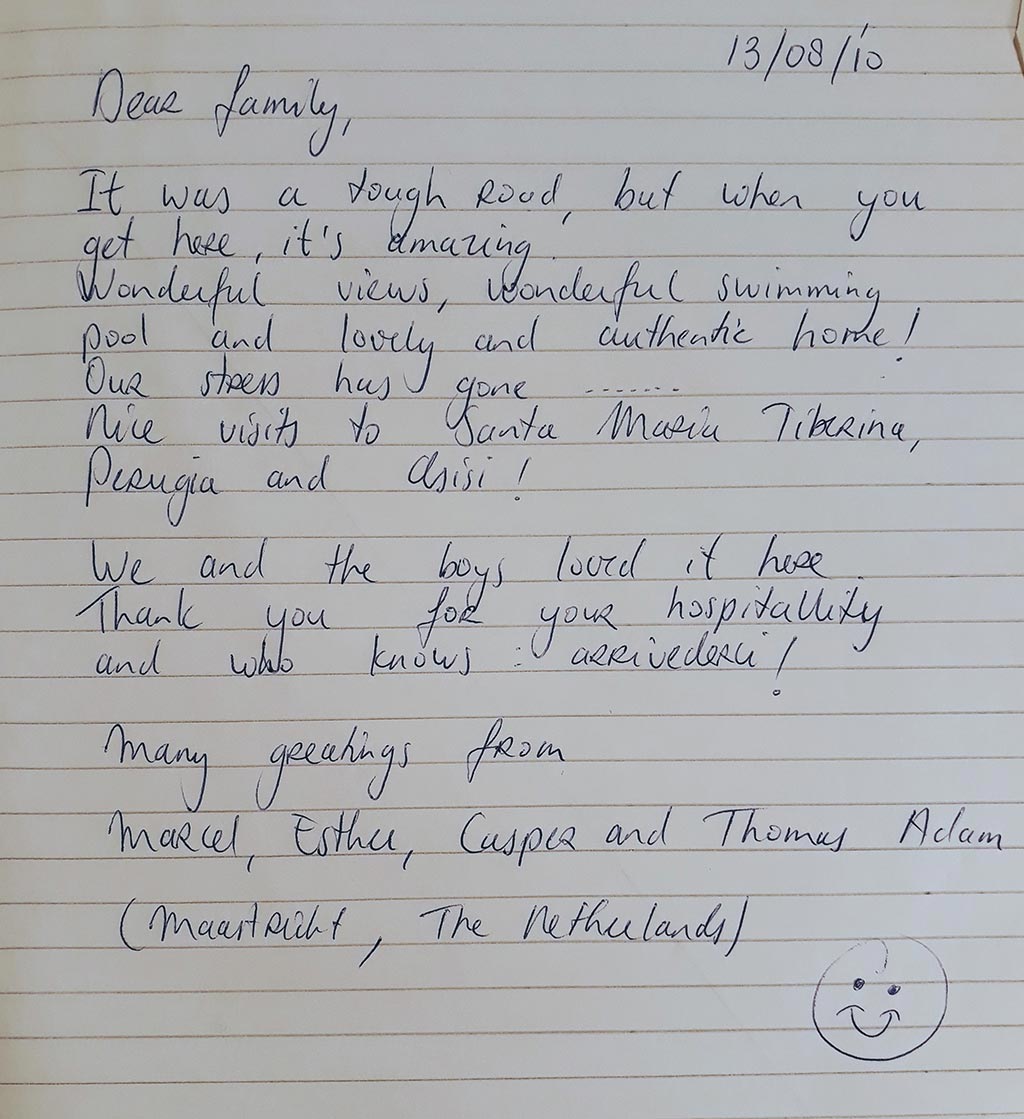 13/08/10
Dear family,
It was a tough road, but when you
get here, it's amazing.
Wonderful views, wonderful swimming
pool and lovely and authentic home!
Our stress has gone .......
Nice visits to Santa Maria Tiberina,
Perugia and Asisi!
We and the boys loved it here.
Thank you for your hospitallity
and who knows : arrivederci!
Many greetings from
Marcel, Esther, Casper and Thomas Adam
(Maastricht, The Netherlands)